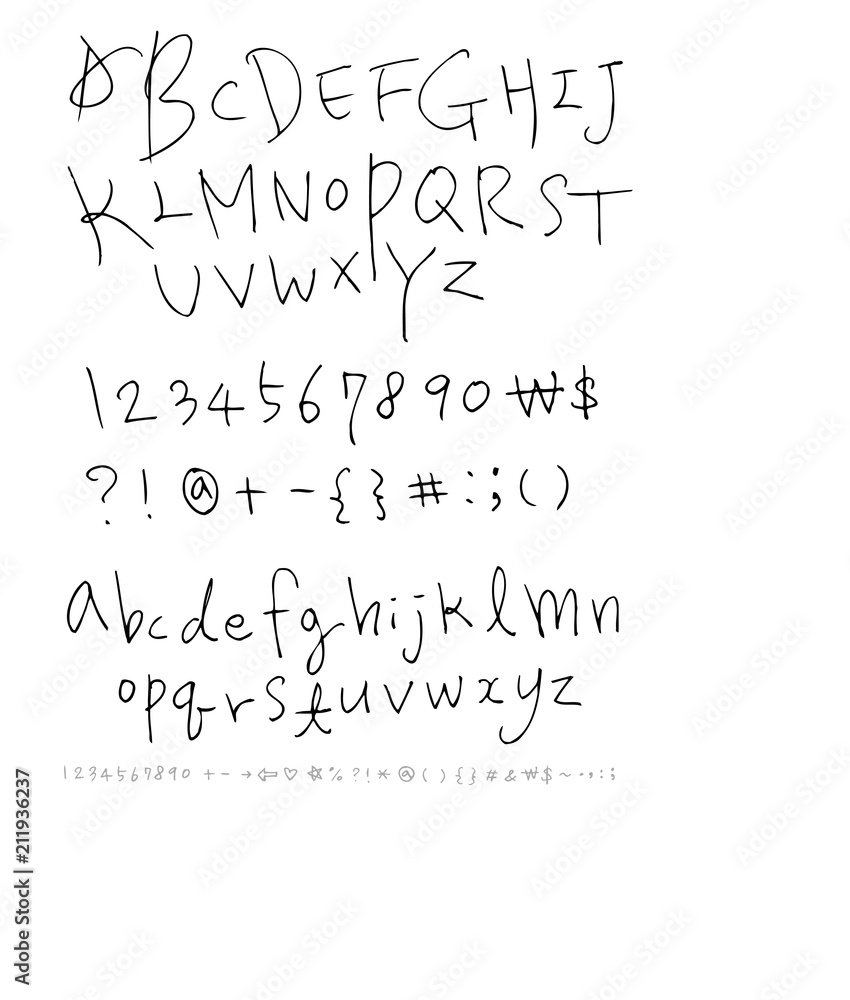 ABCDEFGHIJ
KLMNOPQRST
UVWXYZ
1234567890₩$
?!@+-{}#:;()
abcdefghijklmn
opqrstuvwxyz
1234567890 +-→⇦♡☆%?!*@(){}#&₩$~.,:;
Adobe Stock | #211936237